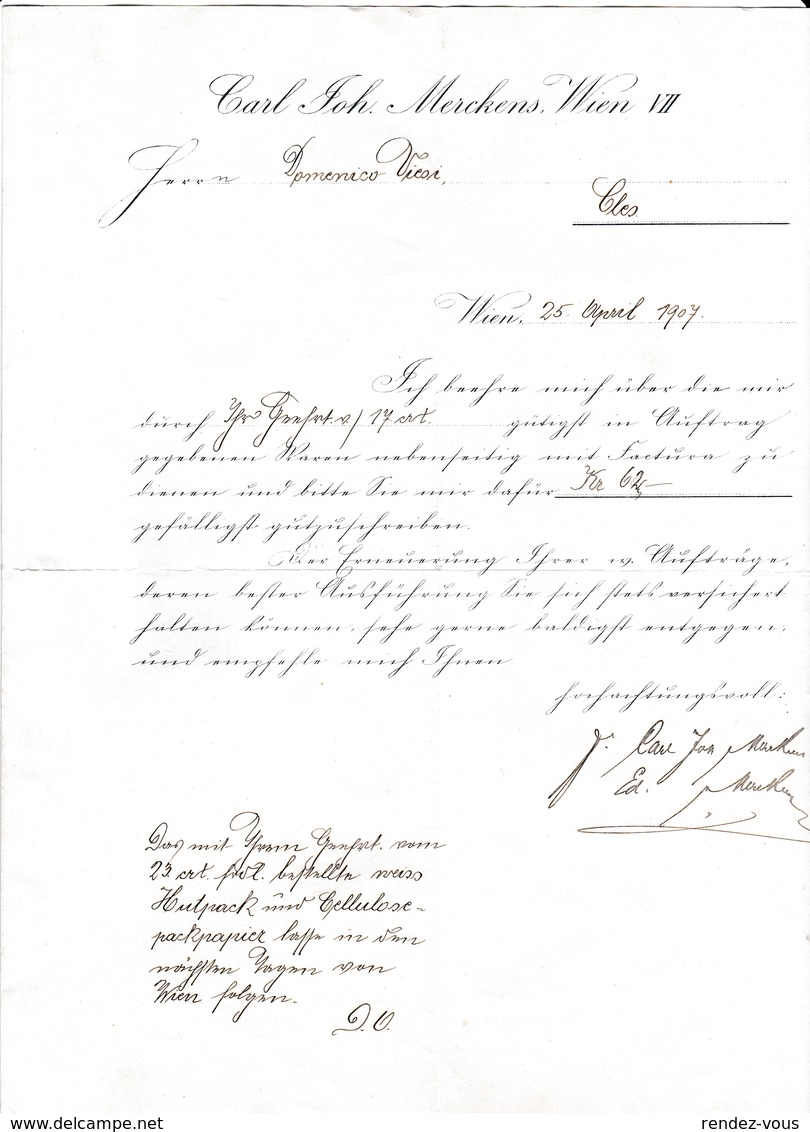 Carl Joh. Merckens, Wien VII
Herrn Domenico Viesi,
Cles
Wien, 25. April 1907.
Ich beehre mich über die mir
durch Ihr Geehrt. v/ 17 crt. gütigst in Auftrag
gegebenen Waren nebenseitig mit Factura zu
dienen und bitte Sie mir dafür Kr 62,—
gefälligst gutzuschreiben.
Der Erneuerung Ihrer w. Aufträge,
deren bester Ausführung Sie sich stets versichert
halten können, sehe gerne baldigst entgegen,
und empfehle mich Ihnen
hochachtungsvoll:
Carl Joh Merckens
Ed. Merckens
Das mit Ihrem Geehrt. vom
23. crt. frdl. bestellte weiss
Hutpack und Cellulose-
packpapier lasse in den
nächsten Tagen von
Wien folgen.
D. O.
delcampe.net
rendez-vous